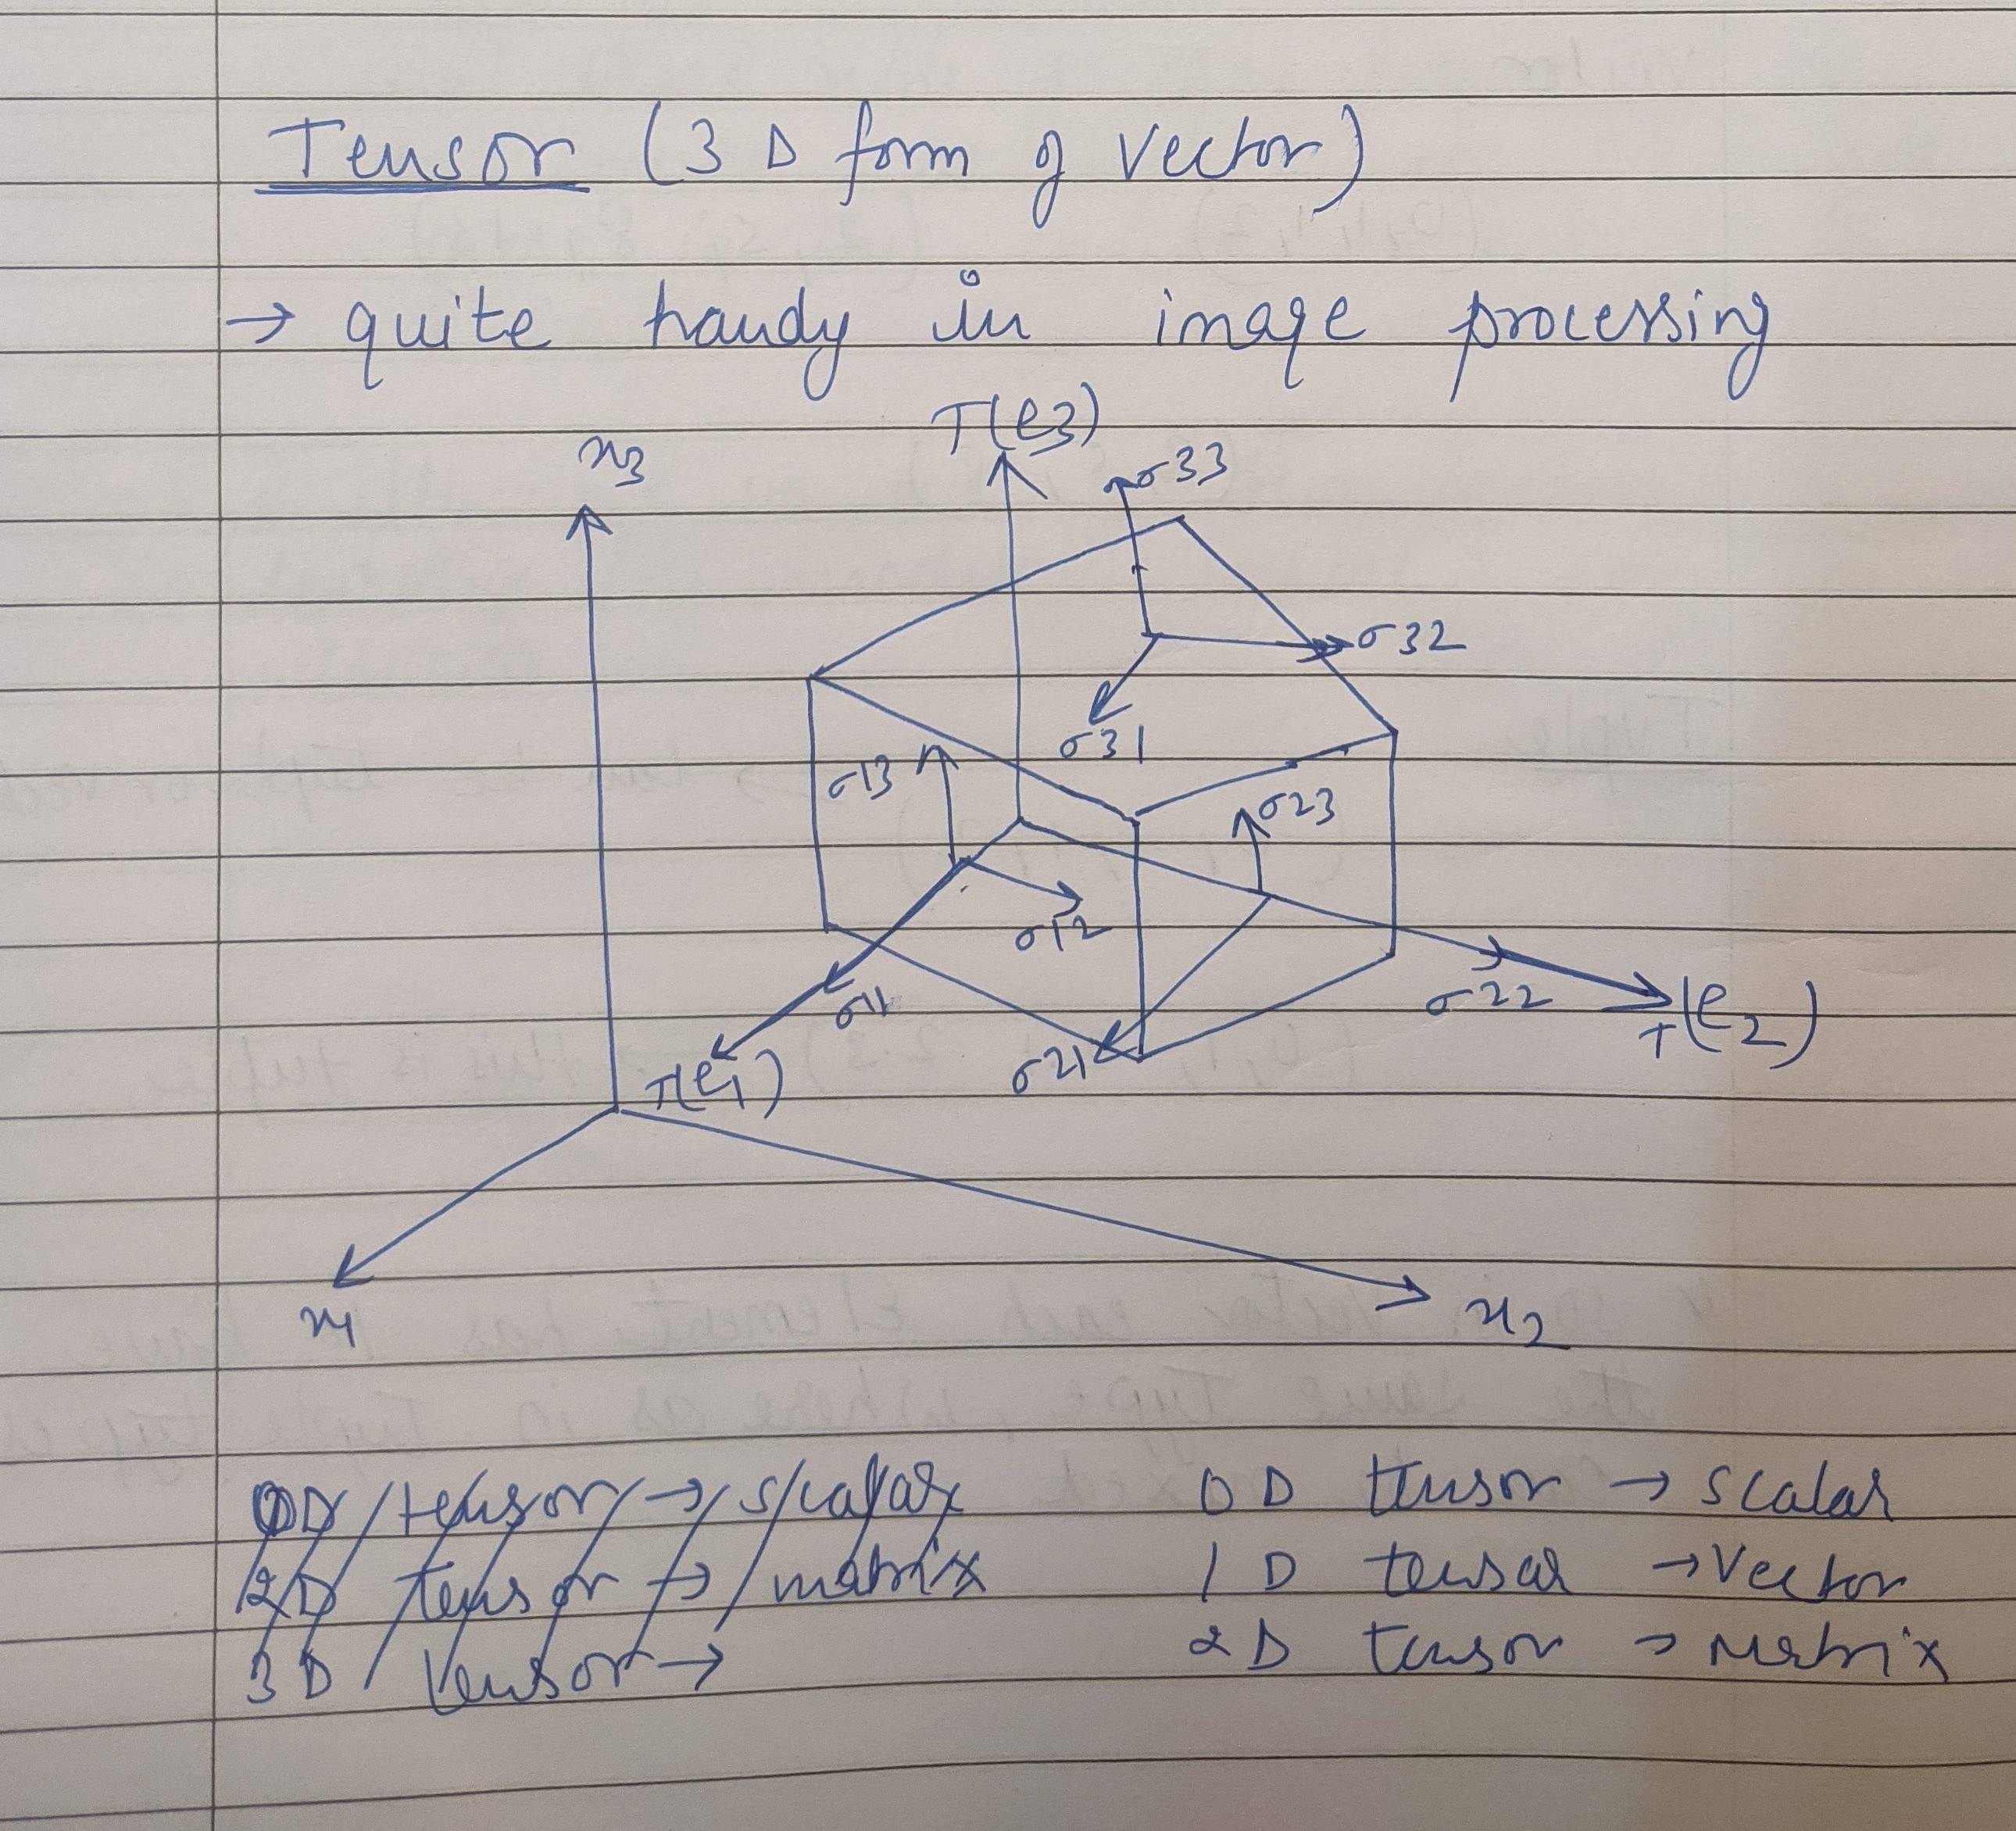 Tensor (3 D form of vector)
→ quite handy in image processing
T(e3)
x3
σ33
σ32
σ31
σ13
σ23
σ12
σ11
σ22
T(e2)
σ21
T(e1)
x1
x2
0D tensor → scalar
2D tensor → matrix
3D tensor →
0 D tensor → scalar
1 D tensor → vector
2 D tensor → matrix